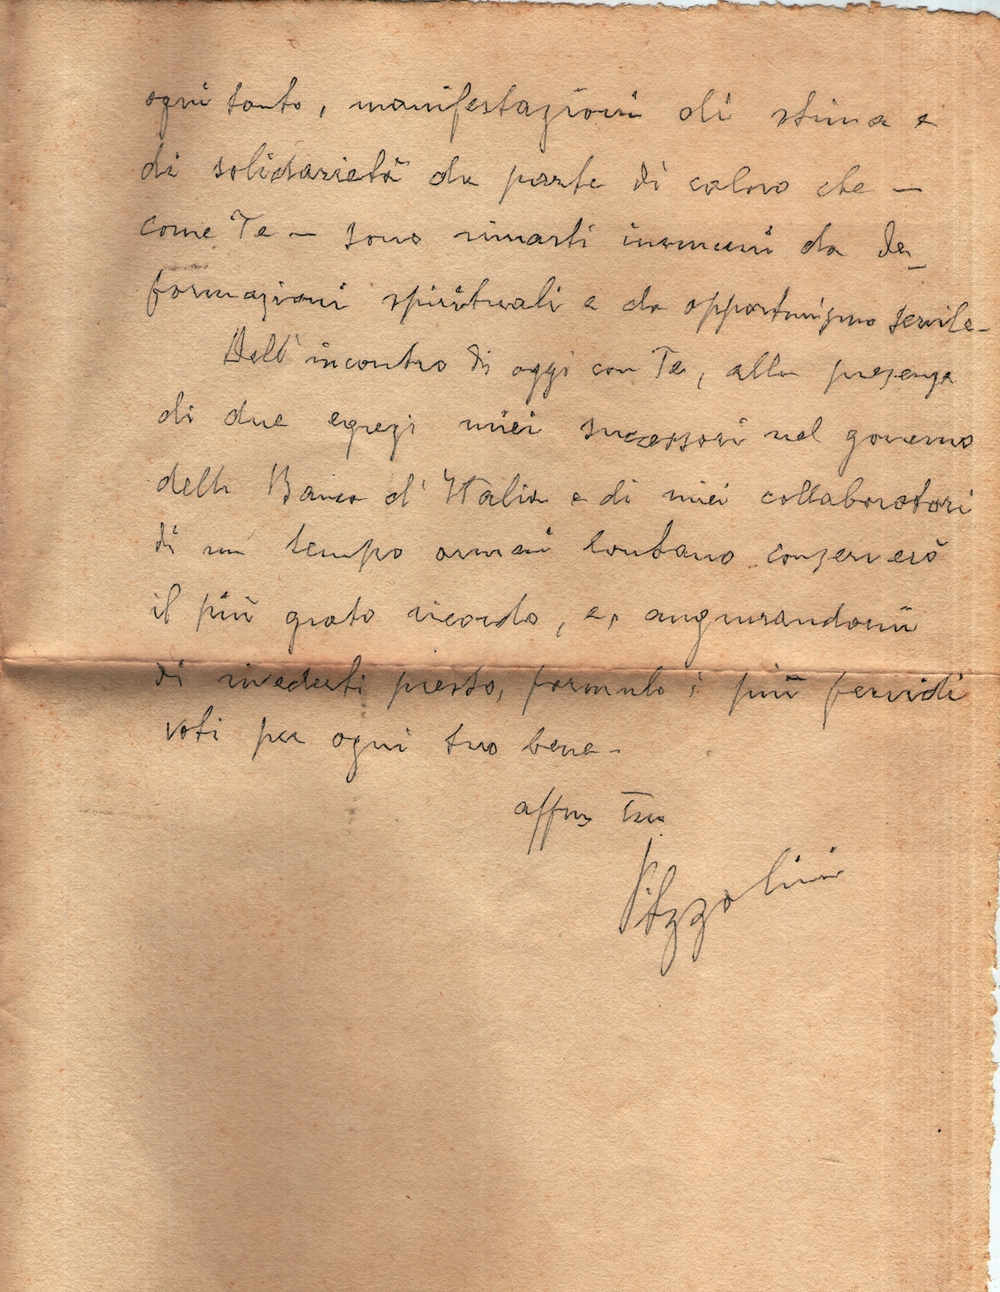 ogni tanto, manifestazioni di stima e
di solidarietà da parte di coloro che –
come Te – sono rimasti immuni da de_
formazioni spirituali e da opportunismo servile –
Dell'incontro di oggi con Te, alla presenza
di due egregi miei successori nel governo
della Banca d'Italia e di miei collaboratori
di un tempo ormai lontano conserverò
il più grato ricordo, e, augurandomi
di rivederti presto, formulo i più fervidi
voti per ogni tuo bene –
affmo Tuo
Azzolini